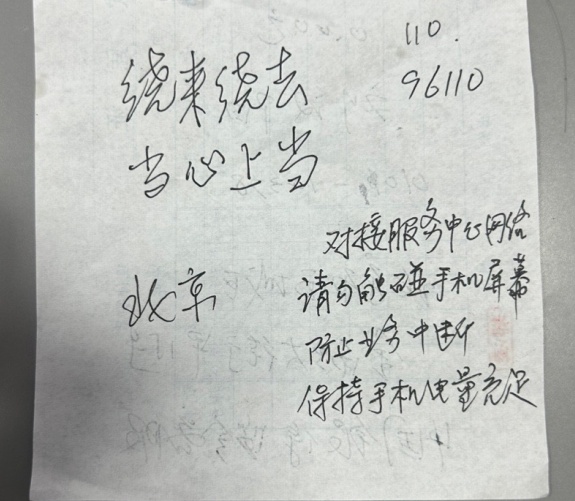 110.
96110
绕来绕去
当心上当
对接服务中心网络
北京
请勿触碰手机屏幕
防止业务中断
保持手机电量充足